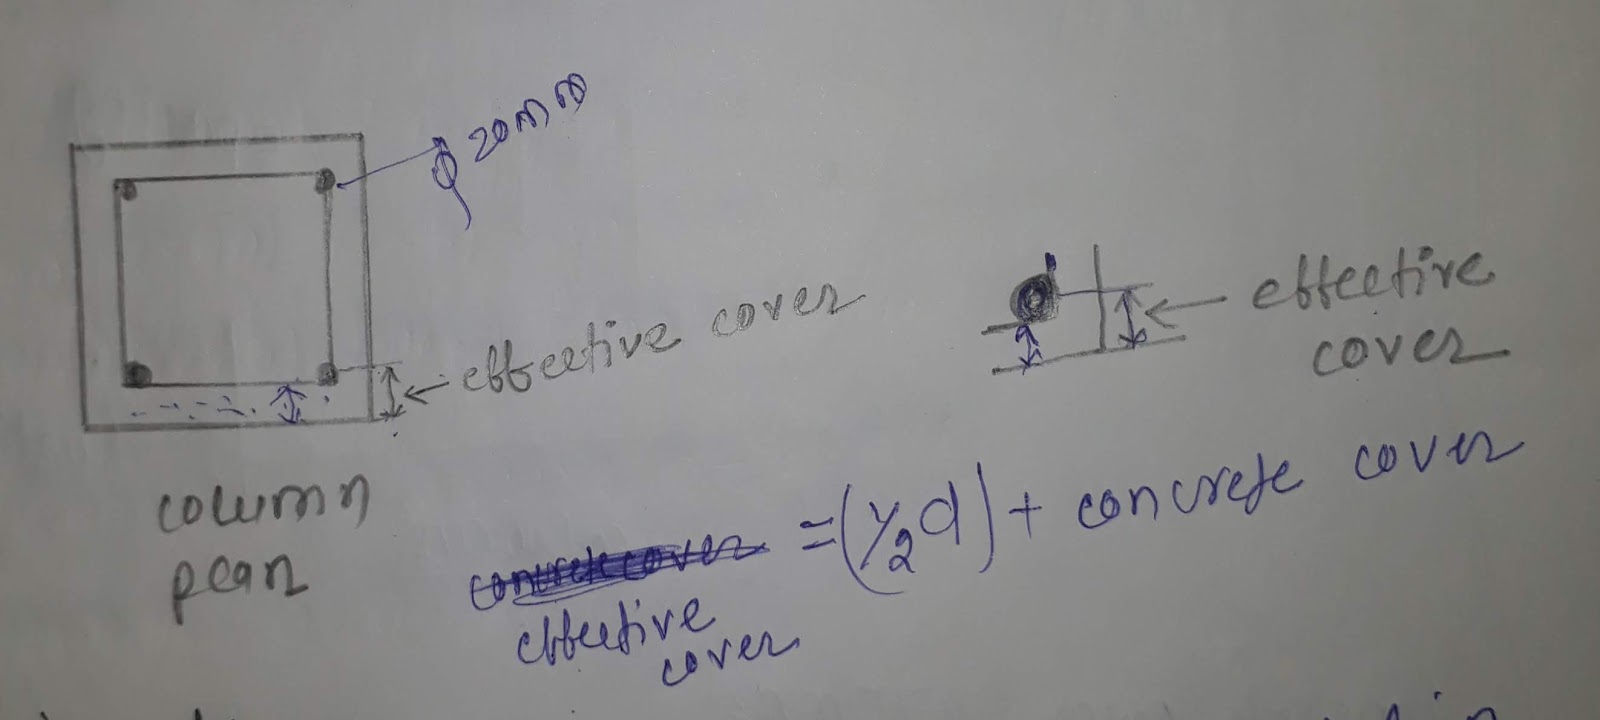 ϕ 20mm
effective cover
column
plan
effective
cover
= (1/2 d) + concrete cover
effective
cover